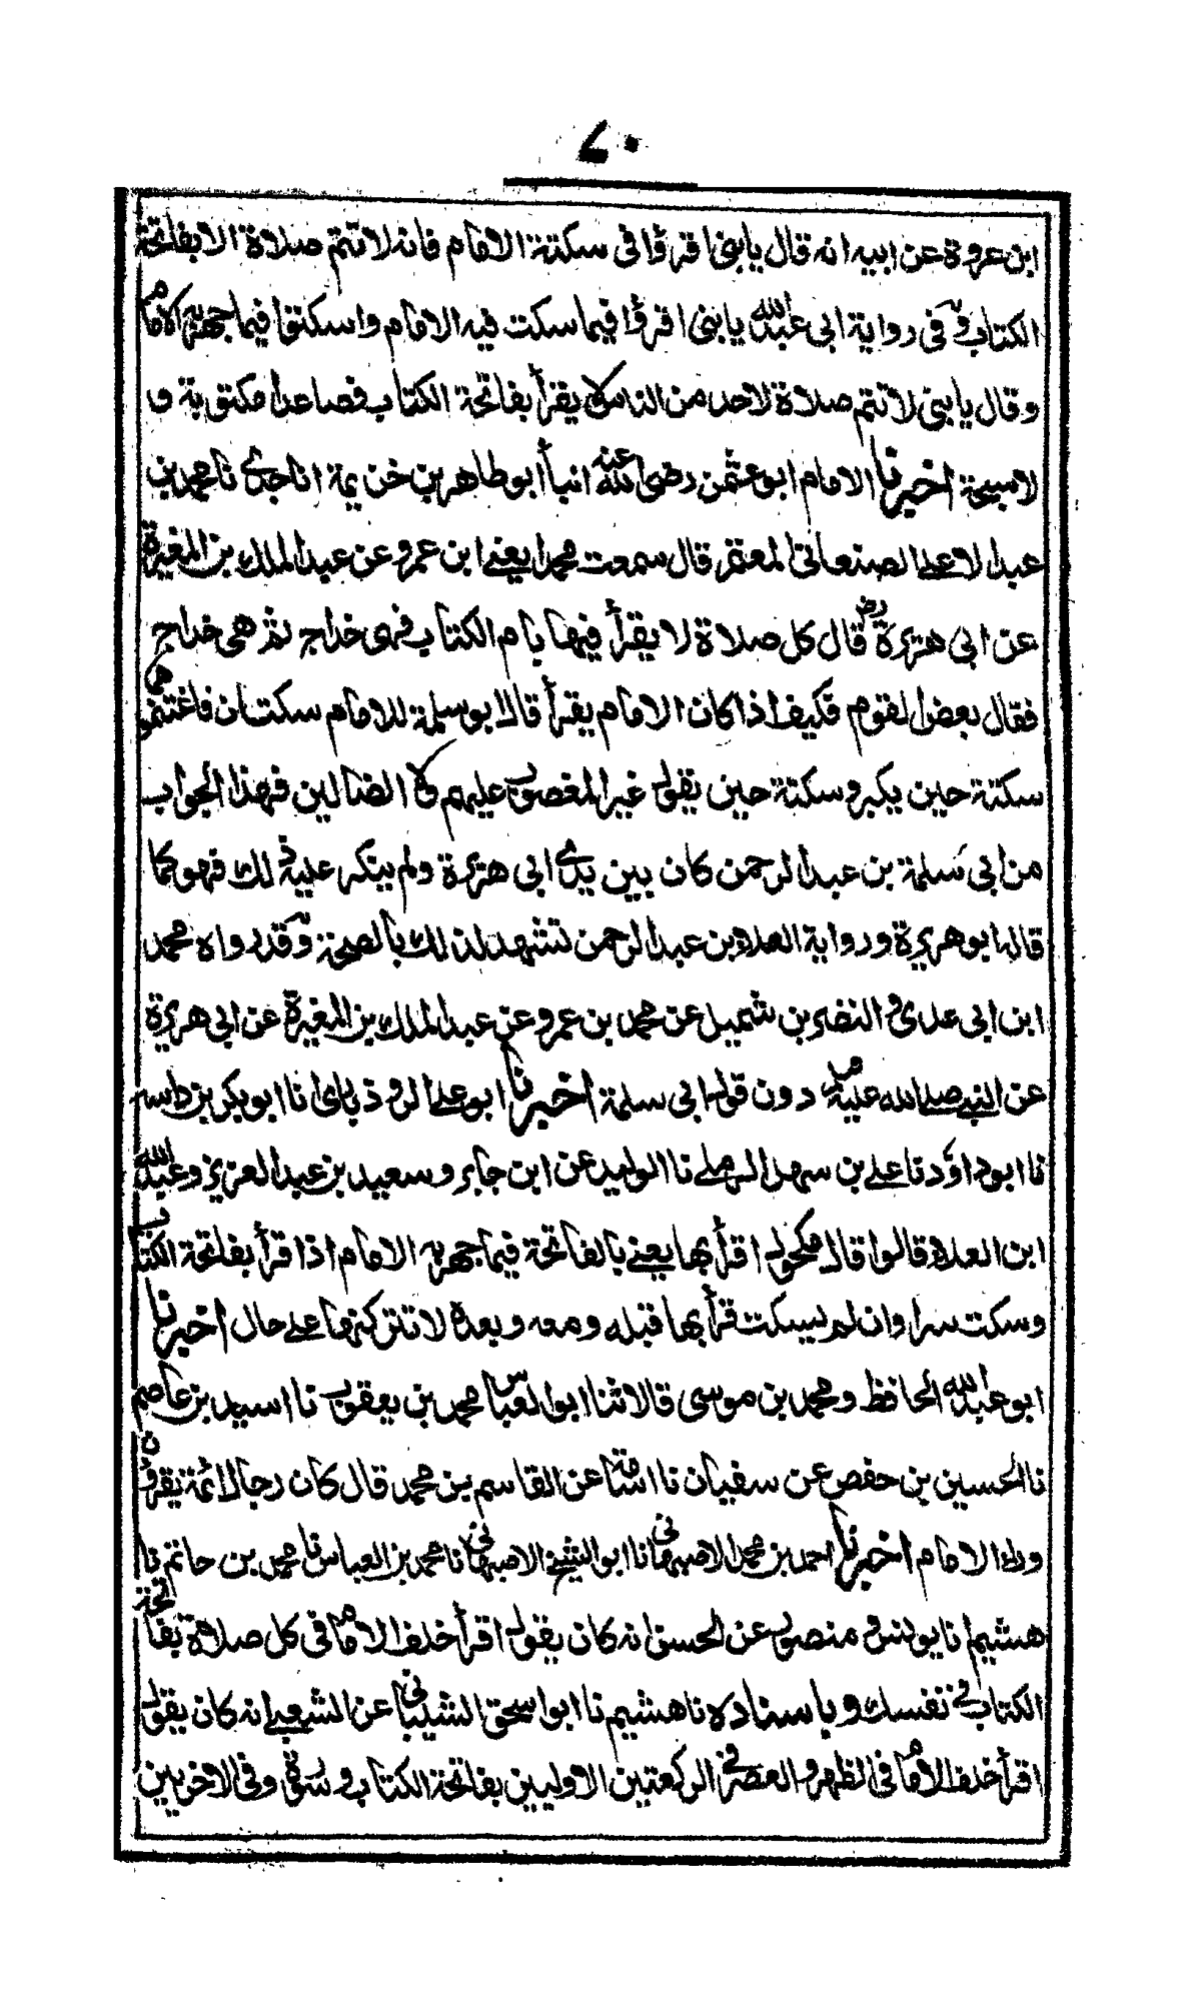 ٧٠
ابن عروة عن ابيه انه قال يا بنى اقرؤا فى سكتة الامام فانه لا تتم صلاة الا بفاتحة
الكتاب وفى رواية ابى عبد الله يا بنى اقرؤا فيما سكت فيه الامام واسكتوا فيما جهر به الامام
وقال يا بنى لا تتم صلاة لاحد من الناس لا يقرأ بفاتحة الكتاب فصاعدا مكتوبة و
لا سبحة اخبرنا الامام ابو عثمن رضى الله عنه انبأ ابو طاهر بن خزيمة انا جدى نا محمد بن
عبد الاعلى الصنعانى نا المعتمر قال سمعت محمدا يعنى ابن عمرو عن عبد الملك بن المغيرة
عن ابى هريرة رض قال كل صلاة لا يقرأ فيها بام الكتاب فهى خداج ثم هى خداج
فقال بعض القوم فكيف اذا كان الامام يقرأ قال ابو سلمة للامام سكتتان فاغتنموهما
سكتة حين يكبر وسكتة حين يقول غير المغضوب عليهم ولا الضالين فهذا الجواب
من ابى سلمة بن عبد الرحمن كان بين يدى ابى هريرة ولم ينكر عليه ذلك فهو كما
قاله ابو هريرة ورواية العلاء بن عبد الرحمن تشهد لذلك بالصحة وقد رواه محمد
ابن ابى عدى و النضر بن شميل عن محمد بن عمرو عن عبد الملك بن المغيرة عن ابى هريرة
عن النبى صلى الله عليه دون قول ابى سلمة اخبرنا ابو على الروذبارى انا ابو بكر بن داسه
نا ابو داود نا على بن سهل الرملى نا الوليد عن ابن جابر وسعيد بن عبد العزيز وعبد الله
ابن العلاء قالوا قال مكحول اقرأ بها يعنى بالفاتحة فيما جهر به الامام اذا قرأ بفاتحة الكتاب
وسكت سرا وان لم يسكت قرأ بها قبله ومعه وبعده لا تتركنها على حال اخبرنا
ابو عبد الله الحافظ ومحمد بن موسى قالا ثنا ابو العباس محمد بن يعقوب نا اسيد بن عاصم
نا الحسين بن حفص عن سفيان نا اسامة عن القاسم بن محمد قال كان رجال ائمة يقرؤن
وراء الامام اخبرنا احمد بن محمد الاصبهانى انا ابو الشيخ الاصبهانى نا محمد بن العباس نا محمد بن حاتم نا
هشيم انا يونس و منصور عن الحسن انه كان يقول اقرأ خلف الامام فى كل صلاة بفاتحة
الكتاب فى نفسك وباسناده نا هشيم نا ابو اسحق الشيبانى عن الشعبى انه كان يقول
اقرأ خلف الامام فى الظهر و العصر فى الركعتين الاوليين بفاتحة الكتاب و سورة وفى الاخريين